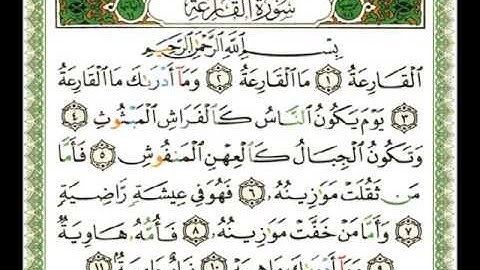 سُورَةُ القَارِعَةِ
بِسْمِ اللَّهِ الرَّحْمَٰنِ الرَّحِيمِ
الْقَارِعَةُ ۝١ مَا الْقَارِعَةُ ۝٢ وَمَا أَدْرَىٰكَ مَا الْقَارِعَةُ
۝٣ يَوْمَ يَكُونُ النَّاسُ كَالْفَرَاشِ الْمَبْثُوثِ ۝٤
وَتَكُونُ الْجِبَالُ كَالْعِهْنِ الْمَنفُوشِ ۝٥ فَأَمَّا
مَن ثَقُلَتْ مَوَٰزِينُهُۥ ۝٦ فَهُوَ فِي عِيشَةٍ رَّاضِيَةٍ
۝٧ وَأَمَّا مَنْ خَفَّتْ مَوَٰزِينُهُۥ ۝٨ فَأُمُّهُۥ هَاوِيَةٌ
۝٩ وَمَا أَدْرَىٰكَ مَا هِيَهْ ۝١٠ نَارٌ حَامِيَةٌ ۝١١